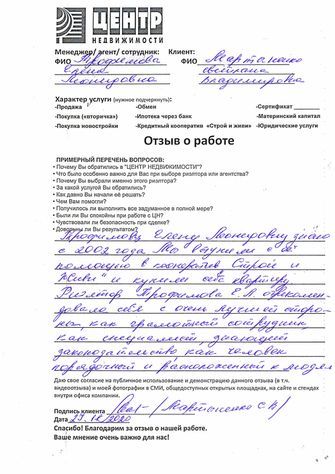 ЦЕНТР
НЕДВИЖИМОСТИ
Менеджер/ агент/ сотрудник: Клиент:
ФИО Трофимова ФИО Мартаненко
Елена Светлана
Леонидовна Владимировна
Характер услуги (нужное подчеркнуть):
-Продажа -Обмен -Сертификат
-Покупка («вторичка») -Ипотека через банк -Материнский капитал
-Покупка новостройки -Кредитный кооператив «Строй и живи» -Юридические услуги
Отзыв о работе
ПРИМЕРНЫЙ ПЕРЕЧЕНЬ ВОПРОСОВ:
• Почему Вы обратились в "ЦЕНТР НЕДВИЖИМОСТИ"?
• Что было особенно важно для Вас при выборе риэлтора или агентства?
• Почему Вы выбрали именно этого риэлтора?
• За какой услугой Вы обратились?
• Как давно Вы начали ее решать?
• Чем Вам помогли?
• Получилось ли выполнить все задуманное в полной мере?
• Были ли Вы спокойны при работе с ЦН?
• Чувствовали ли безопасность при сделке?
• Довольны ли Вы результатом?
Трофимову Елену Леонидовну знаю
с 2002 года. Мы
помощью в кооператив "Строй и
Живи" и купили себе квартиру.
Риэлтор Трофимова Е.Л. зарекомен-
довала себя с очень лучшей сторо-
ны, как грамотный сотрудник
как специалист знающий
законодательство как человек
порядочный и расположенный к людям
Даю свое согласие на публичное использование и демонстрацию данного отзыва (в т.ч.
видеоотзыва) и моей фотографии в СМИ, общедоступных открытых площадках, на сайте и стендах
внутри офиса компании.
Подпись клиента
Дата 29.12.2020
Спасибо! Благодарим за отзыв о нашей работе.
Ваше мнение очень важно для нас!